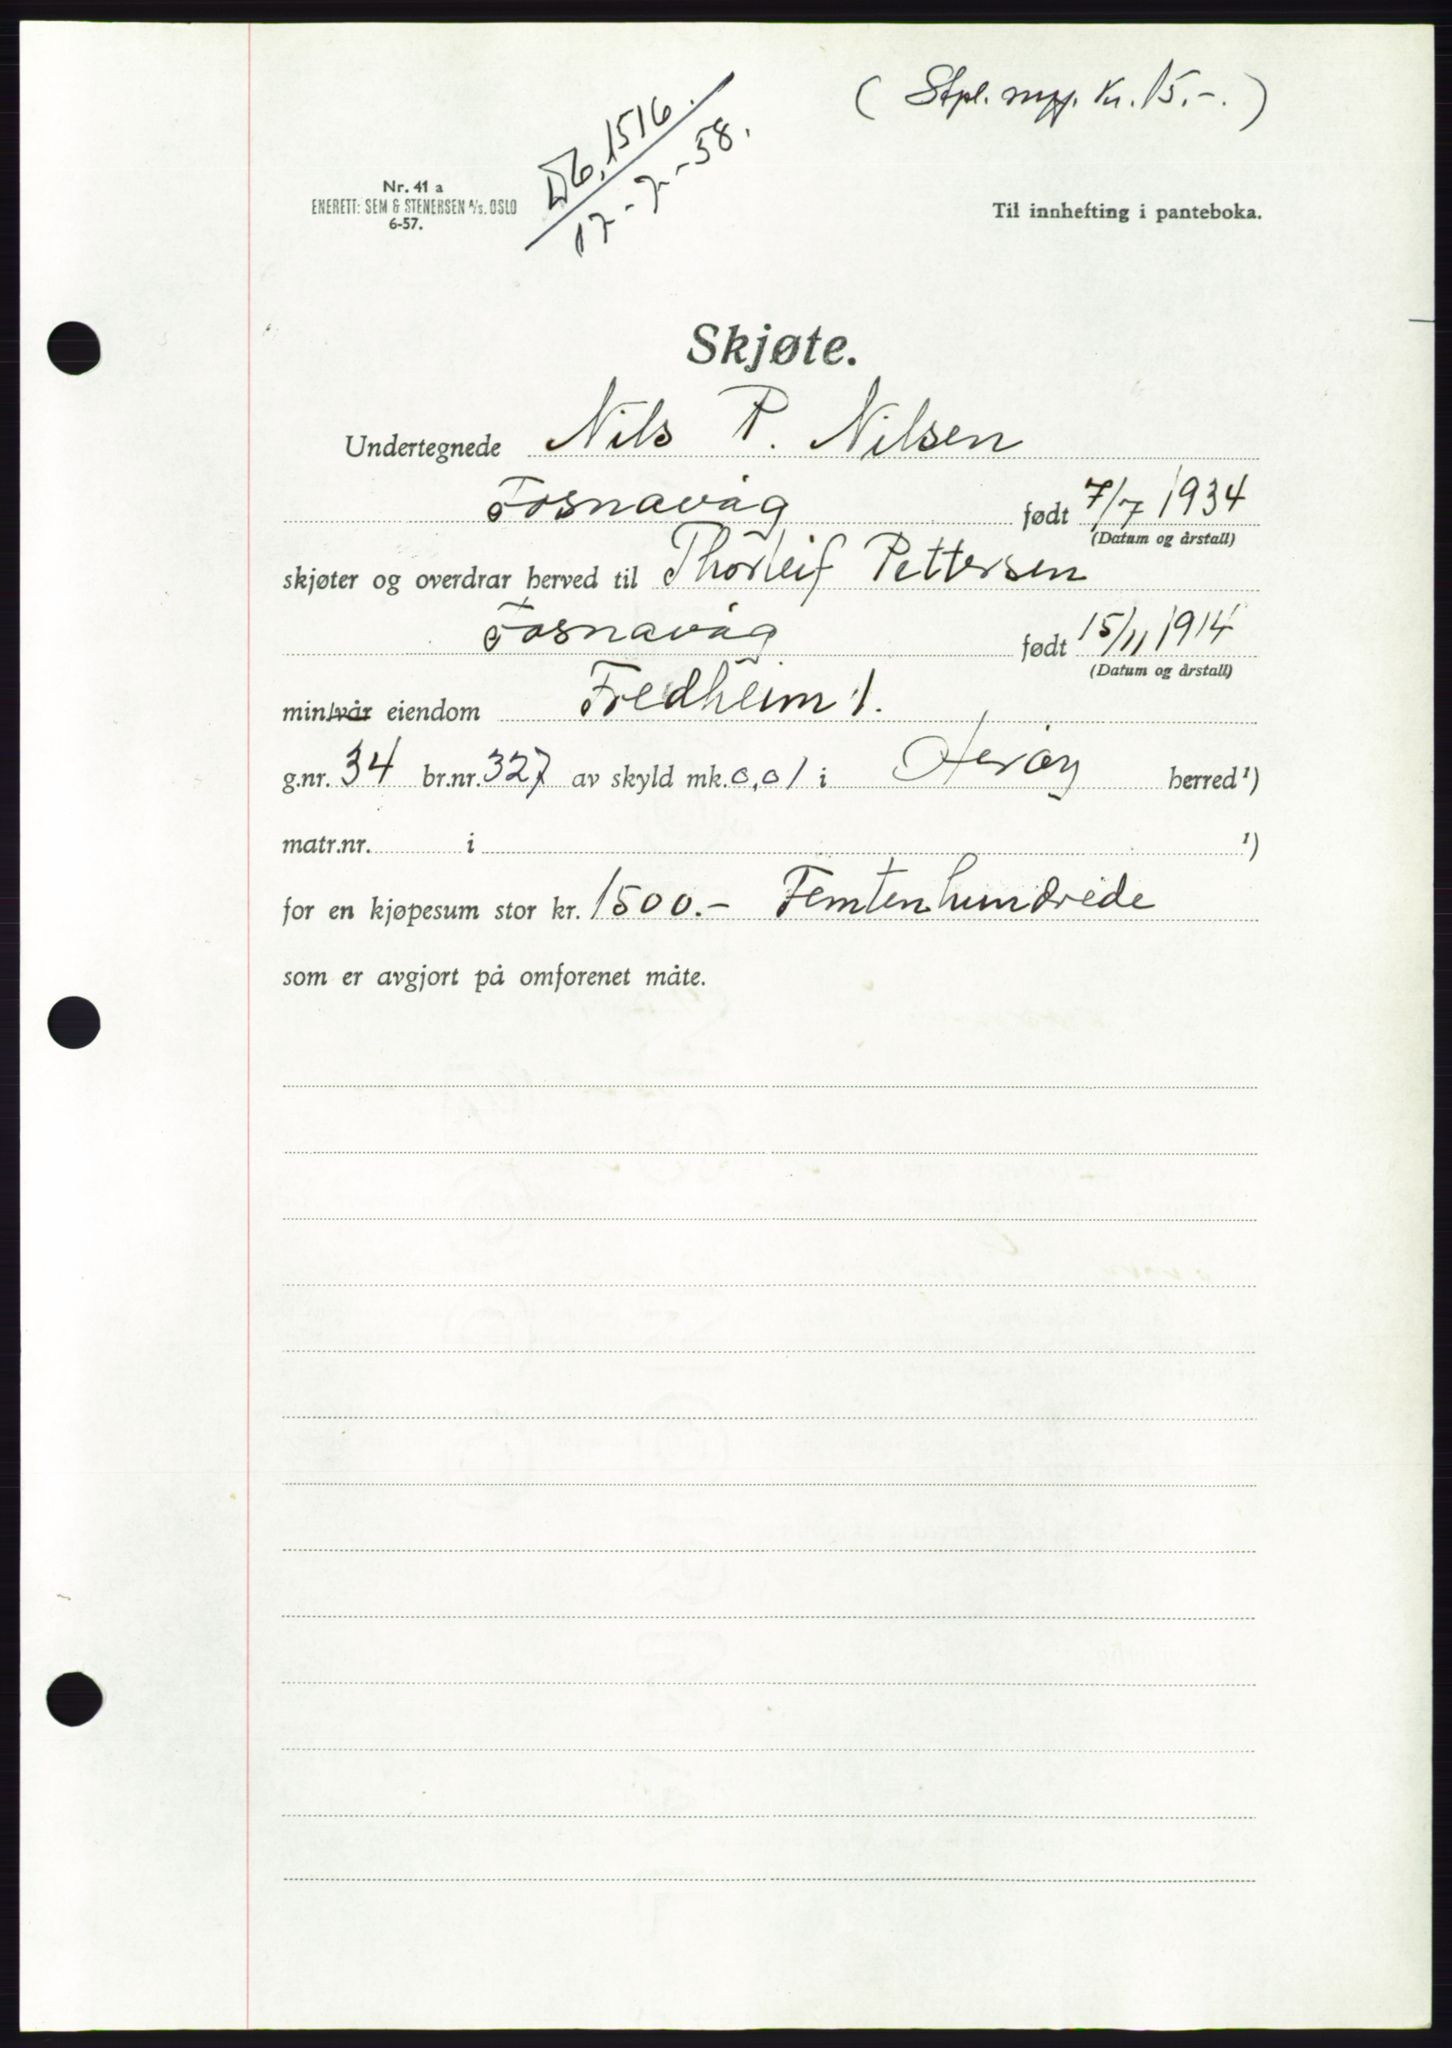 ( Stpl. mgf. Kr. 15.-. )
Db. 1516.
17-7-58.
Nr. 41 a
ENERETT: SEM & STENERSEN A/S. OSLO
6-57.
Til innhefting i panteboka.
Skjøte.
Undertegnede Nils P. Nilsen
Fosnavåg født 7/7 1934
(Datum og årstall)
skjøter og overdrar herved til Thorleif Pettersen
Fosnavåg født 15/11 1914
(Datum og årstall)
min/vår eiendom Fredheim 1.
g.nr. 34 br.nr. 327 av skyld mk. 0,01 i Herøy herred ¹)
matr.nr. i ¹)
for en kjøpesum stor kr. 1500.- Femtenhundrede
som er avgjort på omforenet måte.